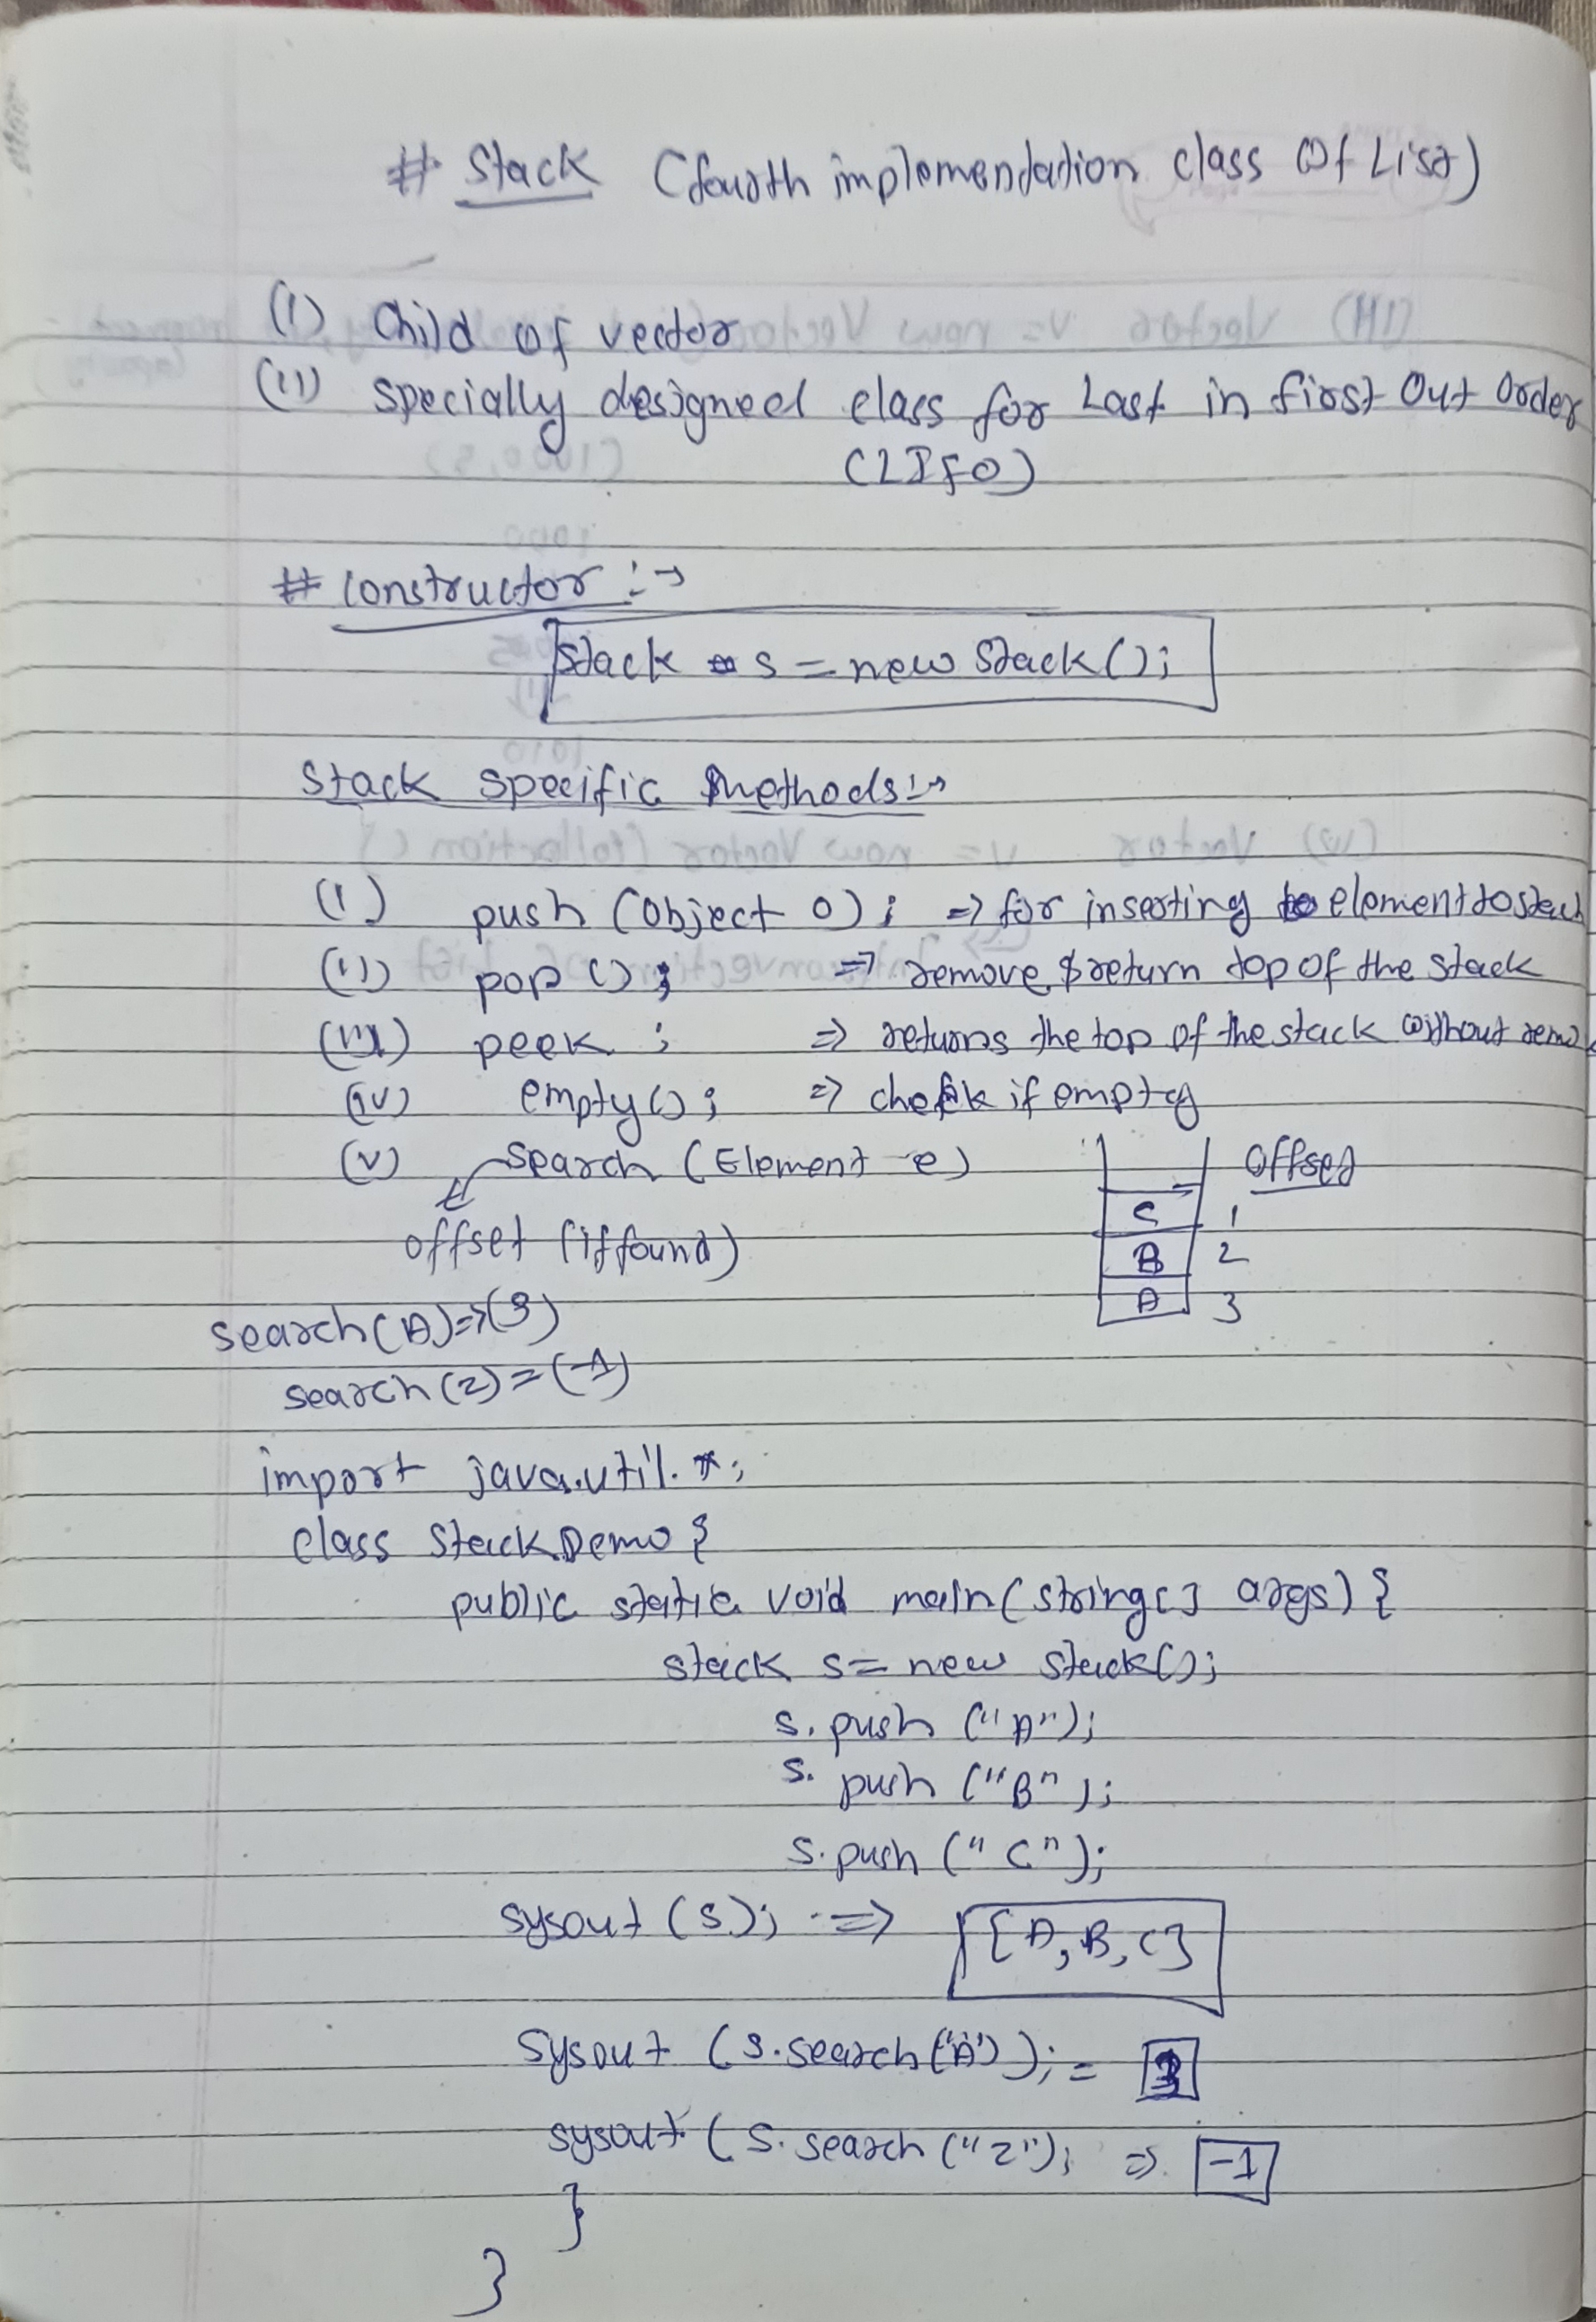 # Stack (fourth implemendation class Of List)
(I) Child of vector
(II) specially designed class for Last in first Out Order
(LIFO)
# Constructor :→
Stack s = new Stack();
Stack Specific Methods:→
(I) push (Object o) ; => for inserting element to stack
(II) pop () ; => remove & return top of the stack
(III) peek ; => returns the top of the stack without
(IV) empty() ; => check if empty
(V) search (Element e)
offset (if found)
Offset
C 1
B 2
A 3
search(A)=>(3)
search(z)=(-1)
import java.util.*;
class StackDemo {
public static void main(String[] args) {
stack s= new stack();
s. push ("A");
s. push ("B");
s.push ("C");
sysout (s); => [A, B, C]
sysout (s.search("A")); = 3
sysout (s. search ("z"); => -1
}
}